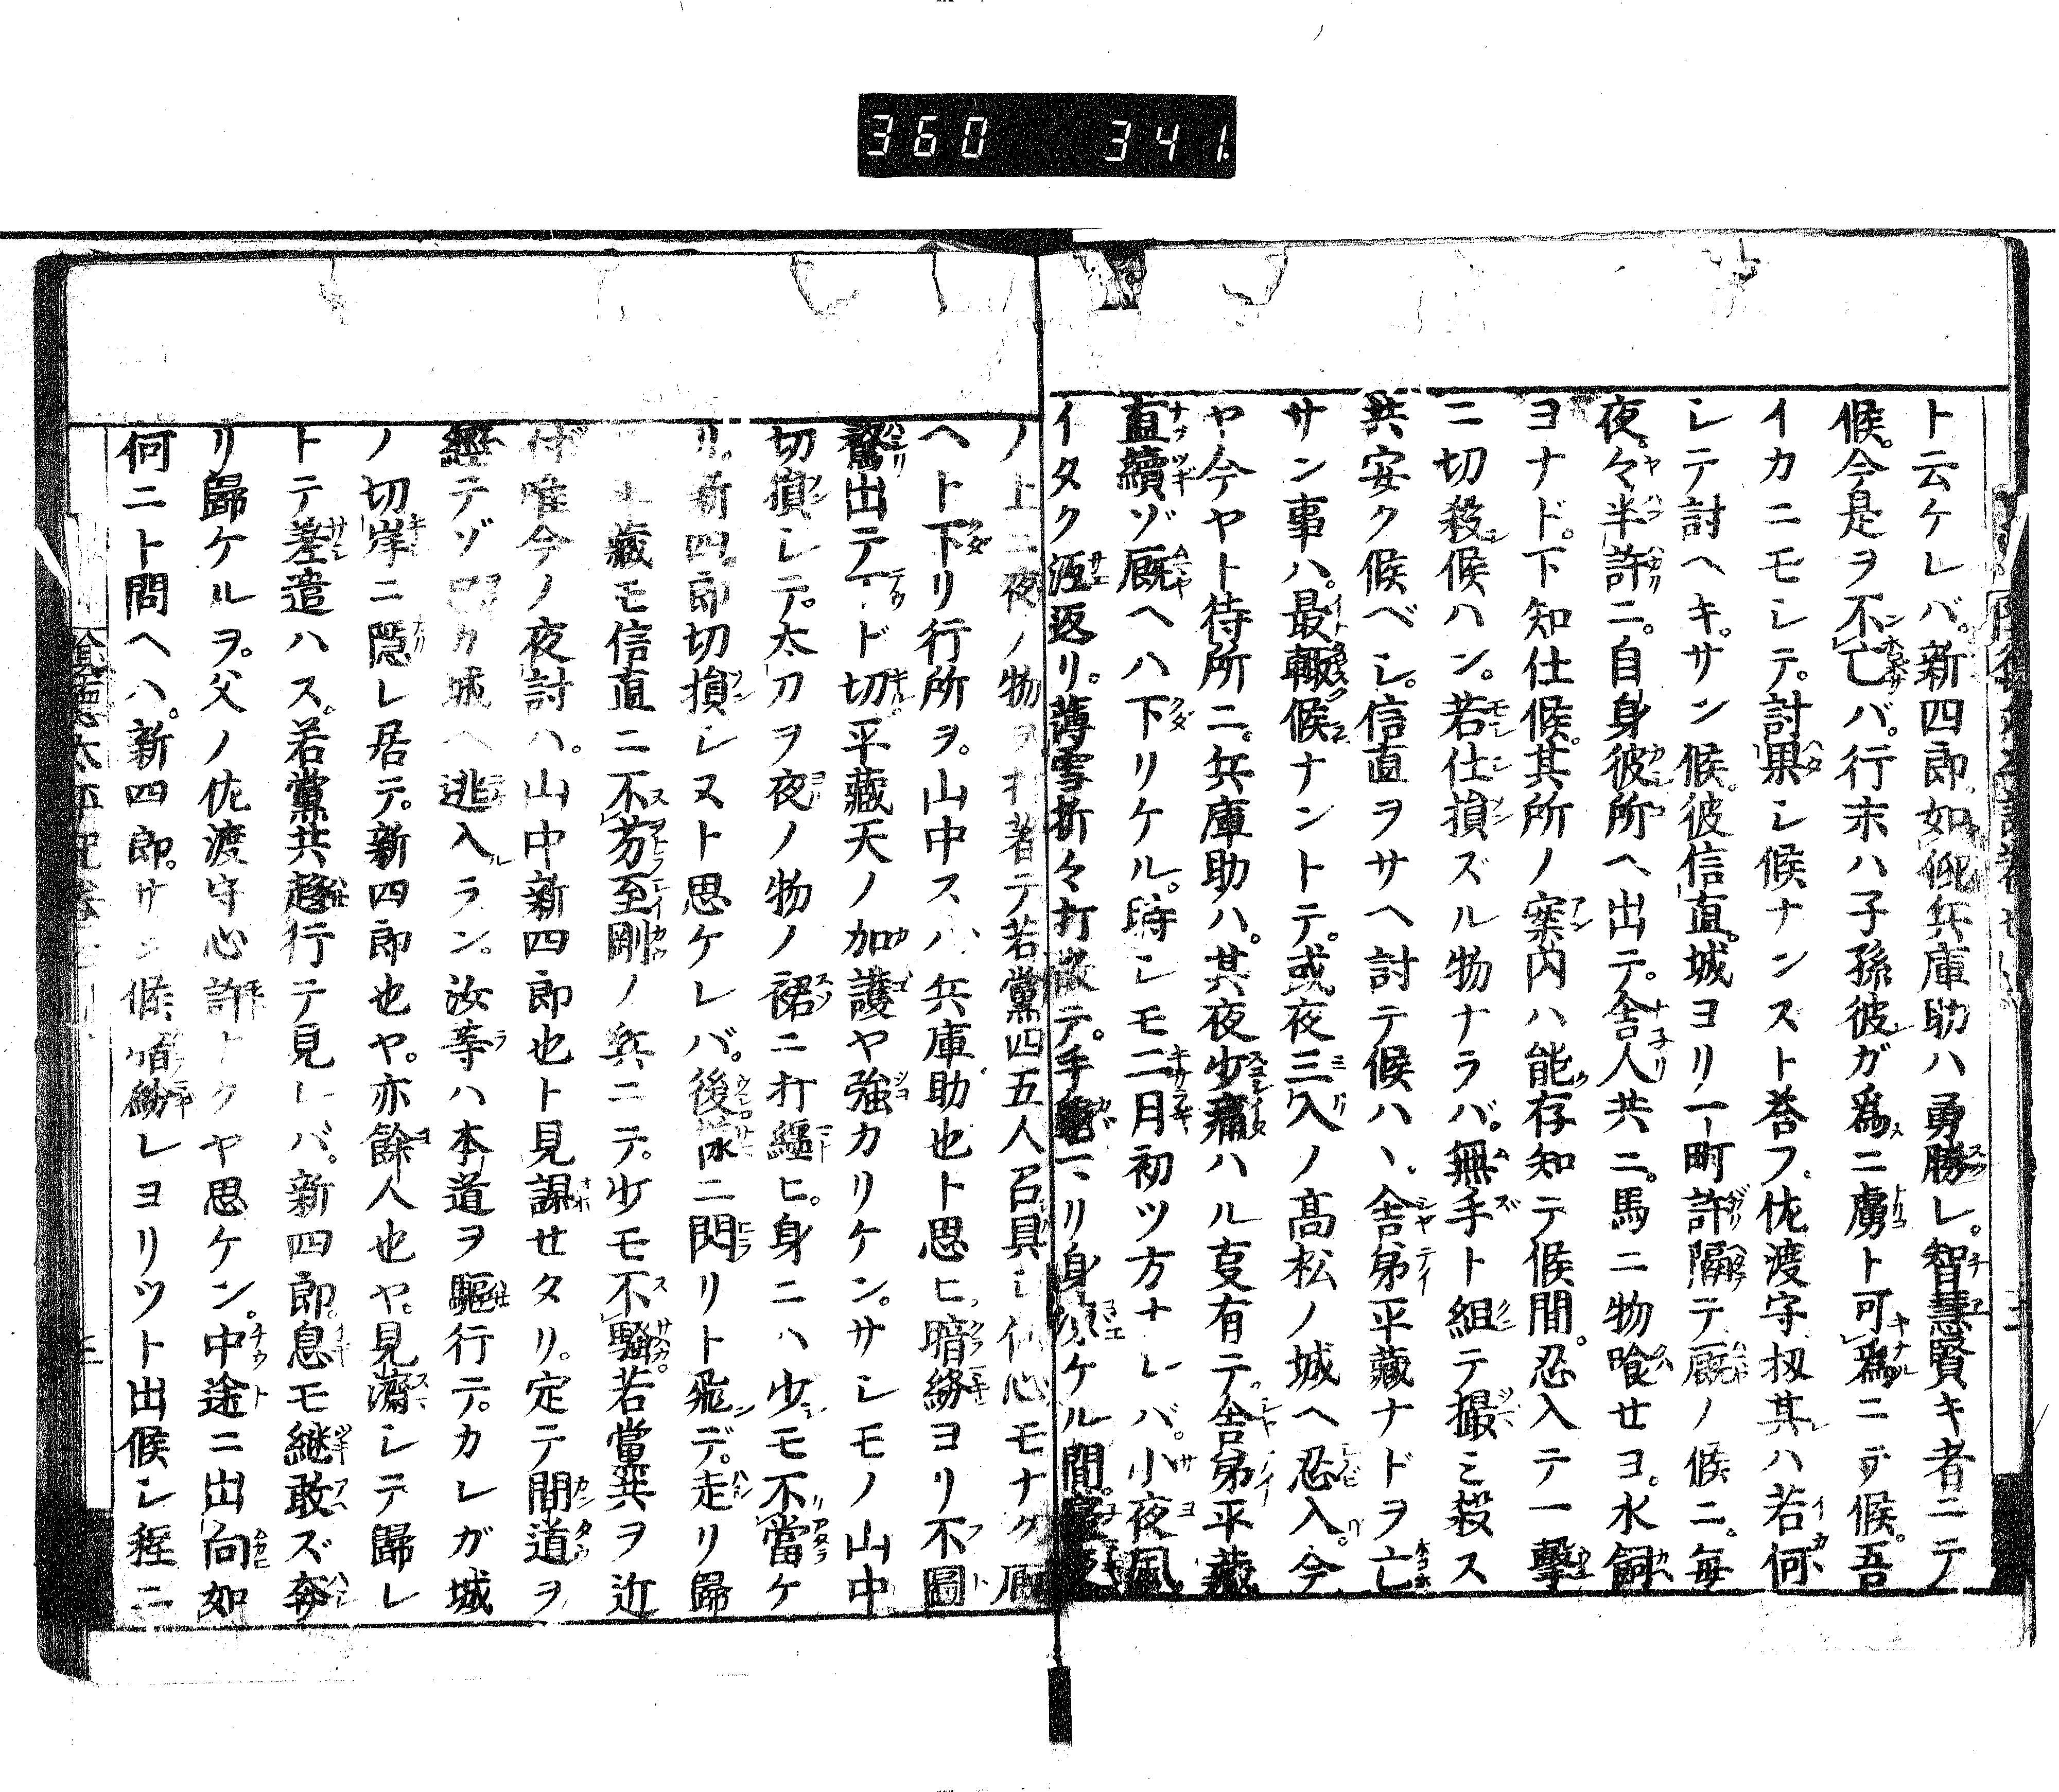 360 341
ト云ケレバ。新四郎。如仰兵庫助ハ勇勝レ。智慧賢キ者ニテ
候。今是ヲ不亡バ。行末ハ子孫彼ガ為ニ虜ト可為ニテ候。吾
イカニモシテ。討果シ候ナンスト荅フ。佐渡守扨其ハ若何
シテ討ヘキ。サン候。彼信直。城ヨリ一町許隔テ厩ノ候ニ。毎
夜。々半許ニ。自身彼所ヘ出テ。舎人共ニ。馬ニ物喰セヨ。水飼
ヨナド。下知仕候。其所ノ案内ハ能存知テ候間。忍入テ一撃
ニ切殺候ハン。若仕損ズル物ナラバ。無手ト組テ撮ミ殺ス
共安ク候ベシ。信直ヲサヘ討テ候ハヽ。舎弟平藏ナドヲ亡
サン事ハ。最輙候ナントテ。或夜三入ノ髙松ノ城ヘ忍入。今
ヤ今ヤト待所ニ。兵庫助ハ。其夜少痛ハル㕝有テ。舎弟平藏
直續ゾ厩ヘハ下リケル。時シモ二月初ツ方ナレバ。小夜風
イタク冱返リ。薄雪折々打散テ。手
リ身
ケル間。
ノ上ニ夜ノ物ヲ打著テ若黨四五人召具シ何心モナク厩
ヘト下リ行所ヲ。山中スハ兵庫助也ト思ヒ。暗紛ヨリ不圖
驀出テ丁ド切。平藏天ノ加護ヤ強カリケン。サシモノ山中
切損シテ。太刀ヲ夜ノ物ノ裾ニ打纒ヒ。身ニハ少モ不當ケ
リ。新四郎切損シヌト思ケレバ。後様ニ閃リト飛デ。走リ歸
藏モ信直ニ不劣至剛ノ兵ニテ。少モ不騒若黨共ヲ近
付唯今ノ夜討ハ。山中新四郎也ト見課セタリ。定テ間道ヲ
經テゾ
カ城ヘ逃入ラン。汝等ハ本道ヲ驅行テ。カレガ城
ノ切岸ニ隠レ居テ。新四郎也ヤ。亦餘人也ヤ。見濟シテ歸レ
トテ差遣ハス。若黨共趂行テ見レバ。新四郎。息モ継敢ズ奔
リ歸ケルヲ。父ノ佐渡守心許トクヤ思ケン。中途ニ出向如
何ニト問ヘハ。新四郎。サン候宵紛レヨリツト出候シ程ニ